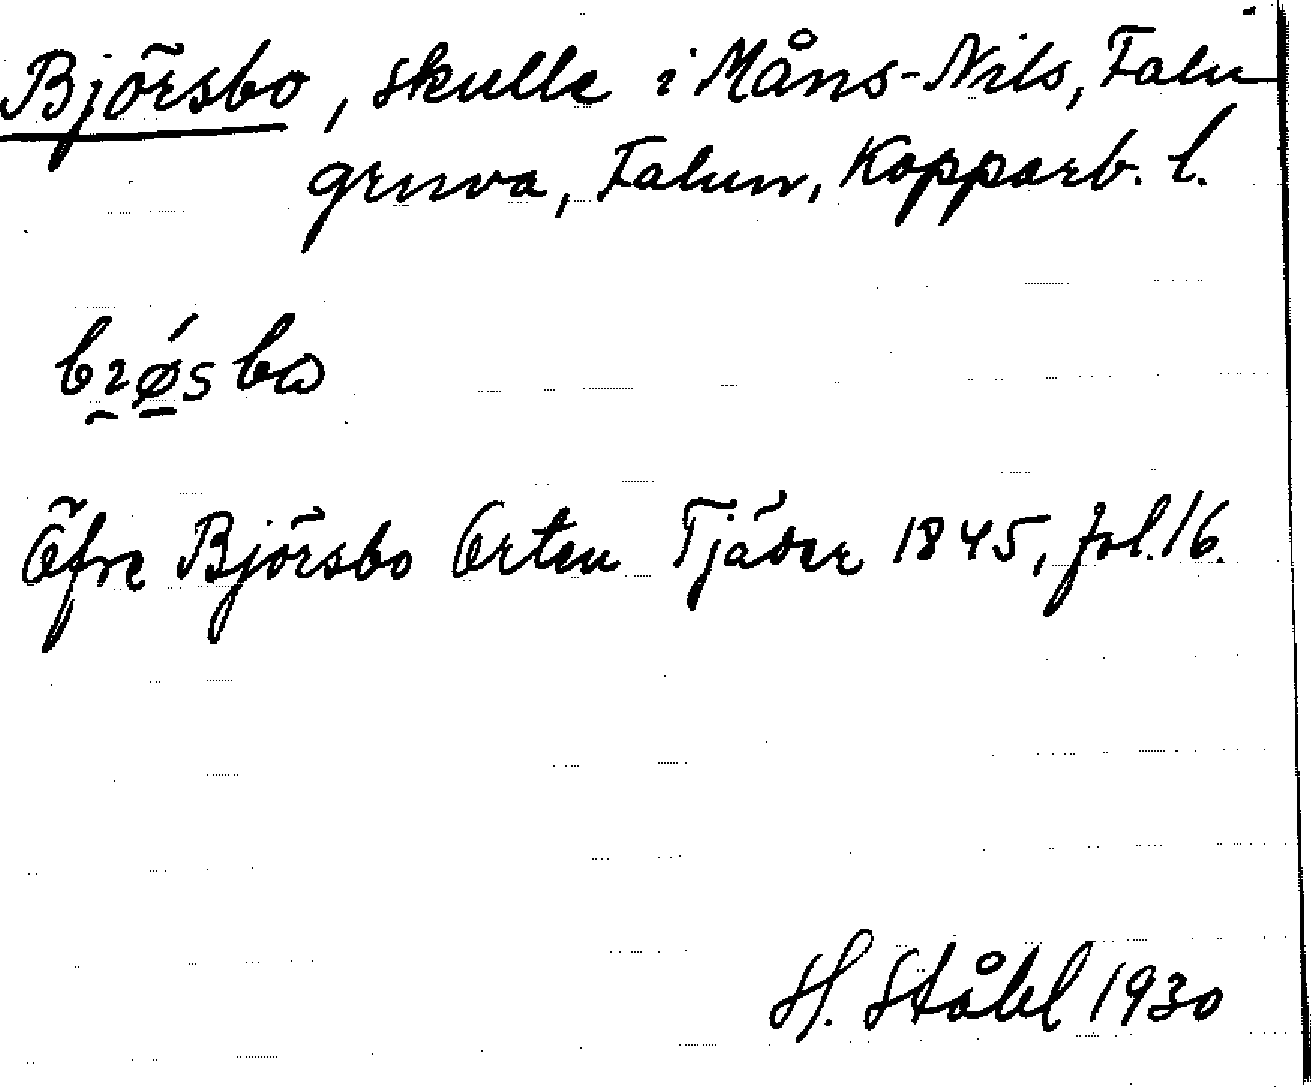 Björsbo, skulle i Måns-Nils, Falu
gruva, Falun, Kopparb. l.
Öfre Björsbo Orten Tjäder 1845, fol. 16.
H. Ståhl 1930